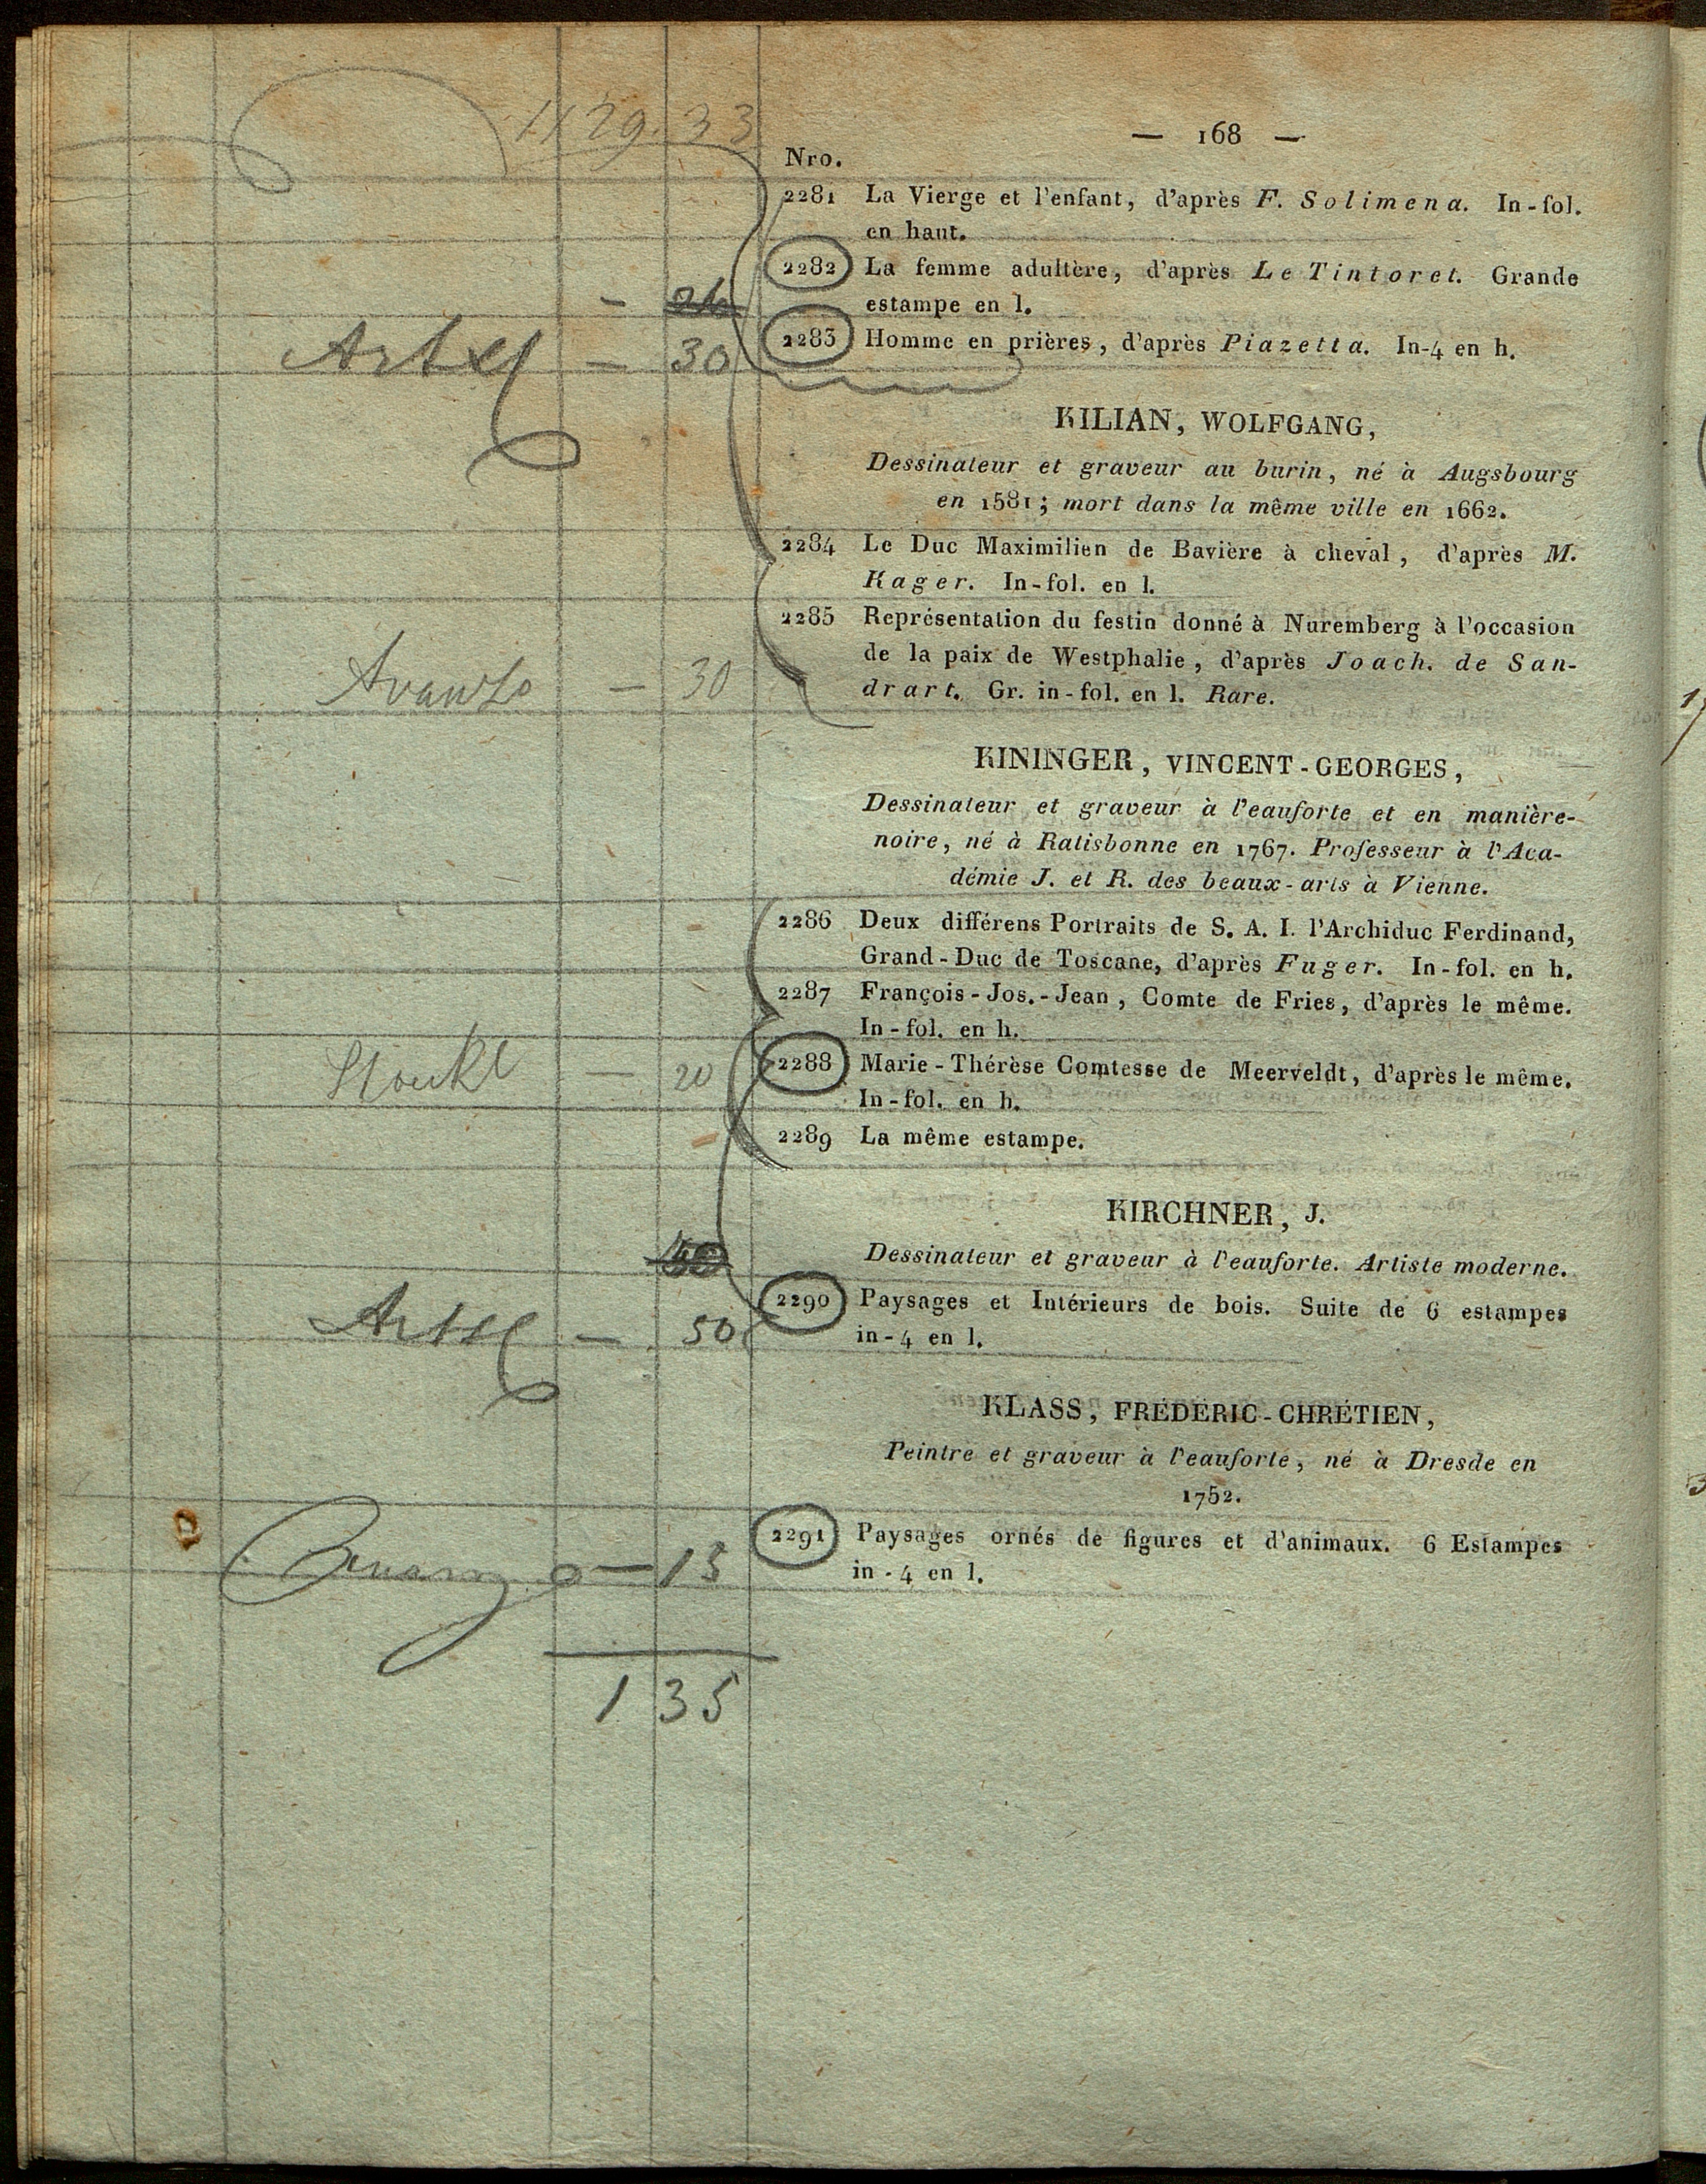 — 168 —
1129.33
Nro.
2281 La Vierge et l'enfant, d'après F. Solimena. In-fol.
en haut.
2282 La femme adultère, d'après Le Tintoret. Grande
estampe en l.
— 30 2283 Homme en prières, d'après Piazetta. In-4 en h.
KILIAN, WOLFGANG,
Dessinateur et graveur au burin, né à Augsbourg
en 1581; mort dans la même ville en 1662.
2284 Le Duc Maximilien de Bavière à cheval, d'après M.
Kager. In-fol. en l.
2285 Représentation du festin donné à Nuremberg à l'occasion
de la paix de Westphalie, d'après Joach. de San-
Avanzo — 30 drart. Gr. in-fol. en l. Rare.
KININGER, VINCENT-GEORGES,
Dessinateur et graveur à l'eauforte et en manière-
noire, né à Ratisbonne en 1767. Professeur à l'Aca-
démie J. et R. des beaux-arts à Vienne.
2286 Deux différens Portraits de S. A. I. l'Archiduc Ferdinand,
Grand-Duc de Toscane, d'après Fuger. In-fol. en h.
2287 François-Jos.-Jean, Comte de Fries, d'après le même.
In-fol. en h.
— 20 2288 Marie-Thérèse Comtesse de Meerveldt, d'après le même.
In-fol. en h.
2289 La même estampe.
KIRCHNER, J.
Dessinateur et graveur à l'eauforte. Artiste moderne.
2290 Paysages et Intérieurs de bois. Suite de 6 estampes
— 50 in-4 en l.
KLASS, FRÉDÉRIC-CHRÉTIEN,
Peintre et graveur à l'eauforte, né à Dresde en
1752.
2291 Paysages ornés de figures et d'animaux. 6 Estampes
— 15 in-4 en l.
1 35